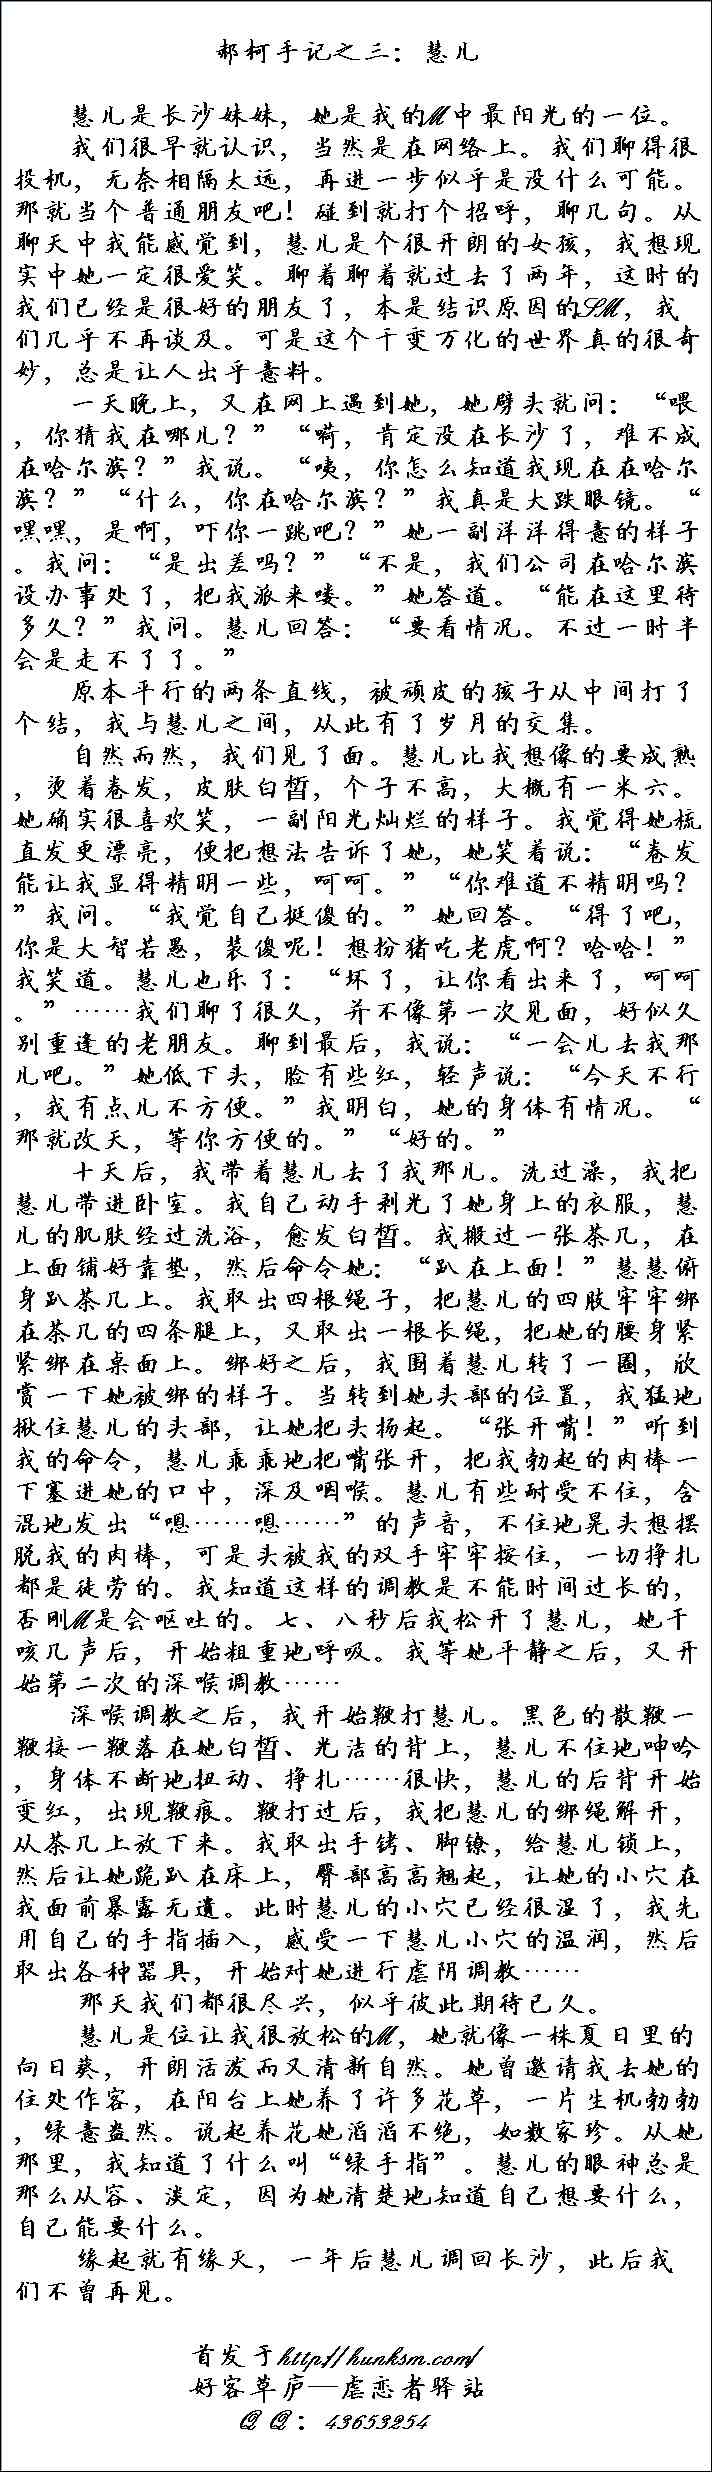 郝柯手记之三：慧儿
慧儿是长沙妹妹，她是我的M中最阳光的一位。
我们很早就认识，当然是在网络上。我们聊得很
投机，无奈相隔太远，再进一步似乎是没什么可能。
那就当个普通朋友吧！碰到就打个招呼，聊几句。从
聊天中我能感觉到，慧儿是个很开朗的女孩，我想现
实中她一定很爱笑。聊着聊着就过去了两年，这时的
我们已经是很好的朋友了，本是结识原因的SM，我
们几乎不再谈及。可是这个千变万化的世界真的很奇
妙，总是让人出乎意料。
一天晚上，又在网上遇到她，她劈头就问：“喂
，你猜我在哪儿？”“嗬，肯定没在长沙了，难不成
在哈尔滨？”我说。“咦，你怎么知道我现在在哈尔
滨？”“什么，你在哈尔滨？”我真是大跌眼镜。“
嘿嘿，是啊，吓你一跳吧？”她一副洋洋得意的样子
。我问：“是出差吗？”“不是，我们公司在哈尔滨
设办事处了，把我派来喽。”她答道。“能在这里待
多久？”我问。慧儿回答：“要看情况。不过一时半
会是走不了了。”
原本平行的两条直线，被顽皮的孩子从中间打了
个结，我与慧儿之间，从此有了岁月的交集。
自然而然，我们见了面。慧儿比我想像的要成熟
，烫着卷发，皮肤白皙，个子不高，大概有一米六。
她确实很喜欢笑，一副阳光灿烂的样子。我觉得她梳
直发更漂亮，便把想法告诉了她，她笑着说：“卷发
能让我显得精明一些，呵呵。”“你难道不精明吗？
”我问。“我觉自己挺傻的。”她回答。“得了吧，
你是大智若愚，装傻呢！想扮猪吃老虎啊？哈哈！”
我笑道。慧儿也乐了：“坏了，让你看出来了，呵呵
。”……我们聊了很久，并不像第一次见面，好似久
别重逢的老朋友。聊到最后，我说：“一会儿去我那
儿吧。”她低下头，脸有些红，轻声说：“今天不行
，我有点儿不方便。”我明白，她的身体有情况。“
那就改天，等你方便的。”“好的。”
十天后，我带着慧儿去了我那儿。洗过澡，我把
慧儿带进卧室。我自己动手剥光了她身上的衣服，慧
儿的肌肤经过洗浴，愈发白皙。我搬过一张茶几，在
上面铺好靠垫，然后命令她：“趴在上面！”慧慧俯
身趴茶几上。我取出四根绳子，把慧儿的四肢牢牢绑
在茶几的四条腿上，又取出一根长绳，把她的腰身紧
紧绑在桌面上。绑好之后，我围着慧儿转了一圈，欣
赏一下她被绑的样子。当转到她头部的位置，我猛地
揪住慧儿的头部，让她把头扬起。“张开嘴！”听到
我的命令，慧儿乖乖地把嘴张开，把我勃起的肉棒一
下塞进她的口中，深及咽喉。慧儿有些耐受不住，含
混地发出“嗯……嗯……”的声音，不住地晃头想摆
脱我的肉棒，可是头被我的双手牢牢按住，一切挣扎
都是徒劳的。我知道这样的调教是不能时间过长的，
否刚M是会呕吐的。七、八秒后我松开了慧儿，她干
咳几声后，开始粗重地呼吸。我等她平静之后，又开
始第二次的深喉调教……
深喉调教之后，我开始鞭打慧儿。黑色的散鞭一
鞭接一鞭落在她白皙、光洁的背上，慧儿不住地呻吟
，身体不断地扭动、挣扎……很快，慧儿的后背开始
变红，出现鞭痕。鞭打过后，我把慧儿的绑绳解开，
从茶几上放下来。我取出手铐、脚镣，给慧儿锁上，
然后让她跪趴在床上，臀部高高翘起，让她的小穴在
我面前暴露无遗。此时慧儿的小穴已经很湿了，我先
用自己的手指插入，感受一下慧儿小穴的温润，然后
取出各种器具，开始对她进行虐阴调教……
那天我们都很尽兴，似乎彼此期待已久。
慧儿是位让我很放松的M，她就像一株夏日里的
向日葵，开朗活泼而又清新自然。她曾邀请我去她的
住处作客，在阳台上她养了许多花草，一片生机勃勃
，绿意盎然。说起养花她滔滔不绝，如数家珍。从她
那里，我知道了什么叫“绿手指”。慧儿的眼神总是
那么从容、淡定，因为她清楚地知道自己想要什么，
自己能要什么。
缘起就有缘灭，一年后慧儿调回长沙，此后我
们不曾再见。
首发于http://hunksm.com/
好客草庐—虐恋者驿站
QQ：43653254